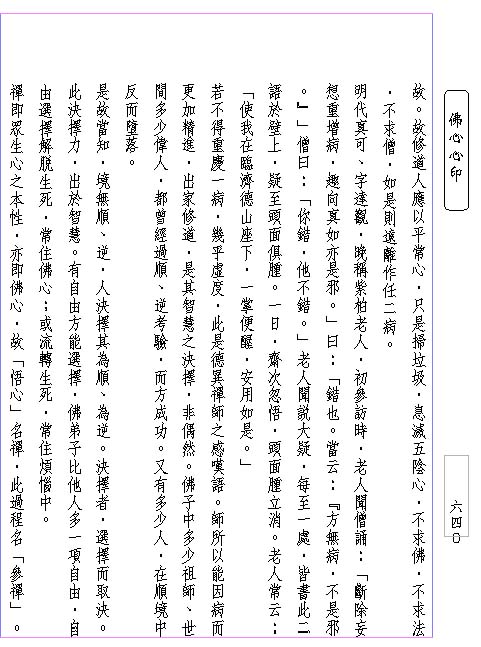 佛心心印
六四〇
故。故修道人應以平常心，只是掃垃圾，息滅五陰心，不求佛，不求法
，不求僧，如是則遠離作任二病。
明代真可、字達觀，晚稱紫柏老人，初參訪時，老人聞僧誦：「斷除妄
想重增病，趣向真如亦是邪。」曰：「錯也。當云：『方無病，不是邪
。』」僧曰：「你錯，他不錯。」老人聞說大疑，每至一處，皆書此二
語於壁上，疑至頭面俱腫。一日，齋次忽悟，頭面腫立消。老人常云：
「使我在臨濟德山座下，一掌便醒，安用如是。」
若不得重慶一病，幾乎虛度，此是德異禪師之感嘆語。師所以能因病而
更加精進，出家修道，是其智慧之決擇，非偶然。佛子中多少祖師、世
間多少偉人，都曾經過順、逆考驗，而方成功。又有多少人，在順境中
反而墮落。
是故當知，境無順、逆，人決擇其為順、為逆。決擇者，選擇而取決。
此決擇力，出於智慧。有自由方能選擇，佛弟子比他人多一項自由，自
由選擇解脫生死，常住佛心；或流轉生死，常住煩惱中。
禪即眾生心之本性，亦即佛心，故「悟心」名禪，此過程名「參禪」。